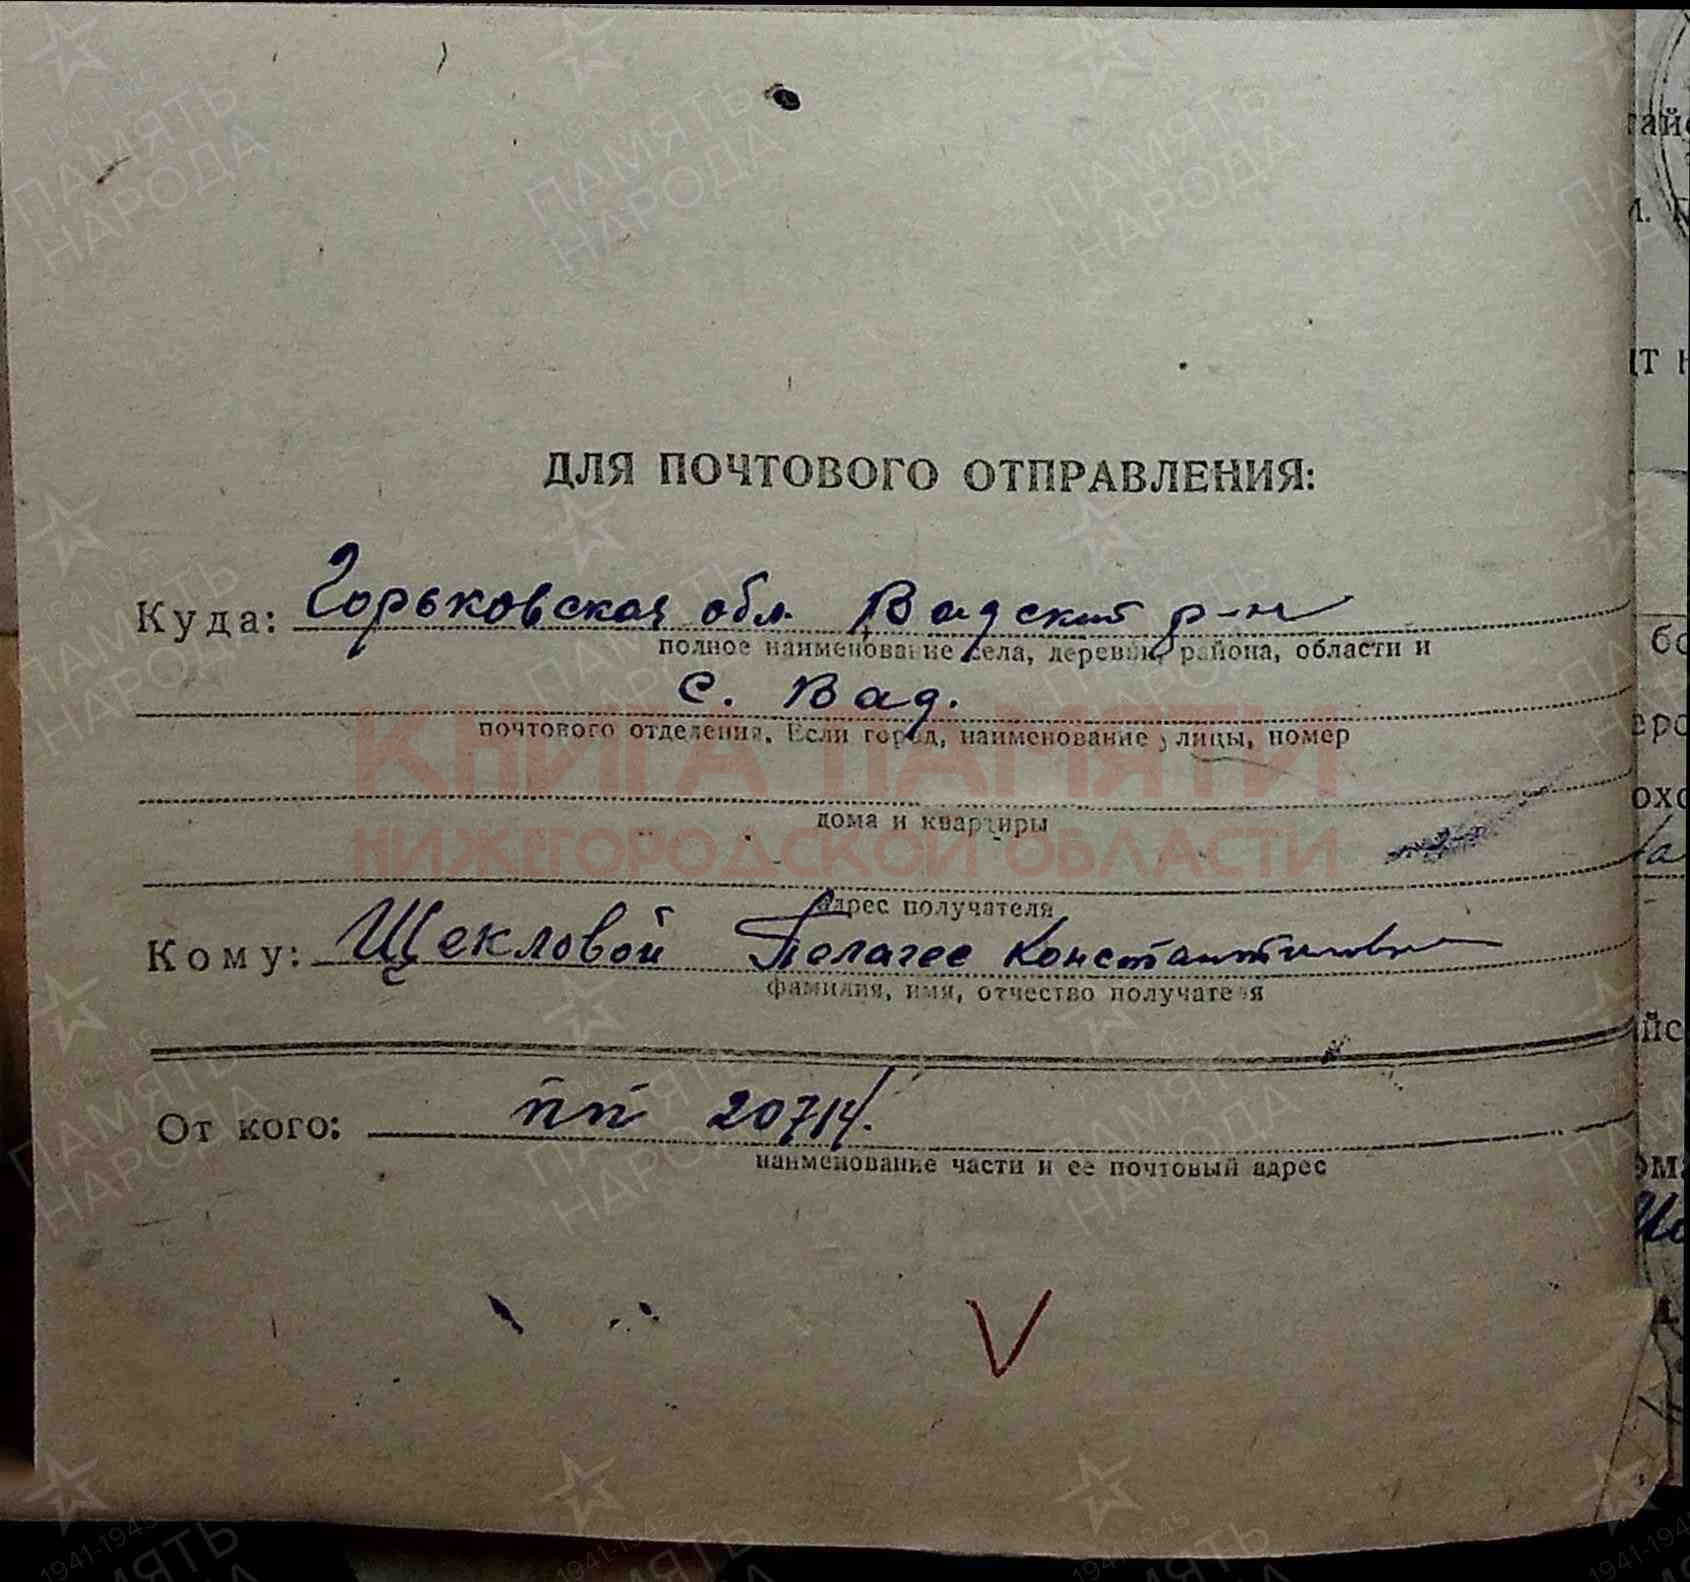 ДЛЯ ПОЧТОВОГО ОТПРАВЛЕНИЯ:
Куда: Горьковская обл. Вадский р-н
полное наименование села, деревни, района, области и
с. Вад.
почтового отделения. Если город, наименование улицы, номер
КНИГА ПАМЯТИ
дома и квартиры
НИЖЕГОРОДСКОЙ ОБЛАСТИ
адрес получателя
Кому: Щекловой Пелагее Константиновне
фамилия, имя, отчество получателя
От кого: пп 20714.
наименование части и ее почтовый адрес
ПАМЯТЬ НАРОДА
1941-1945